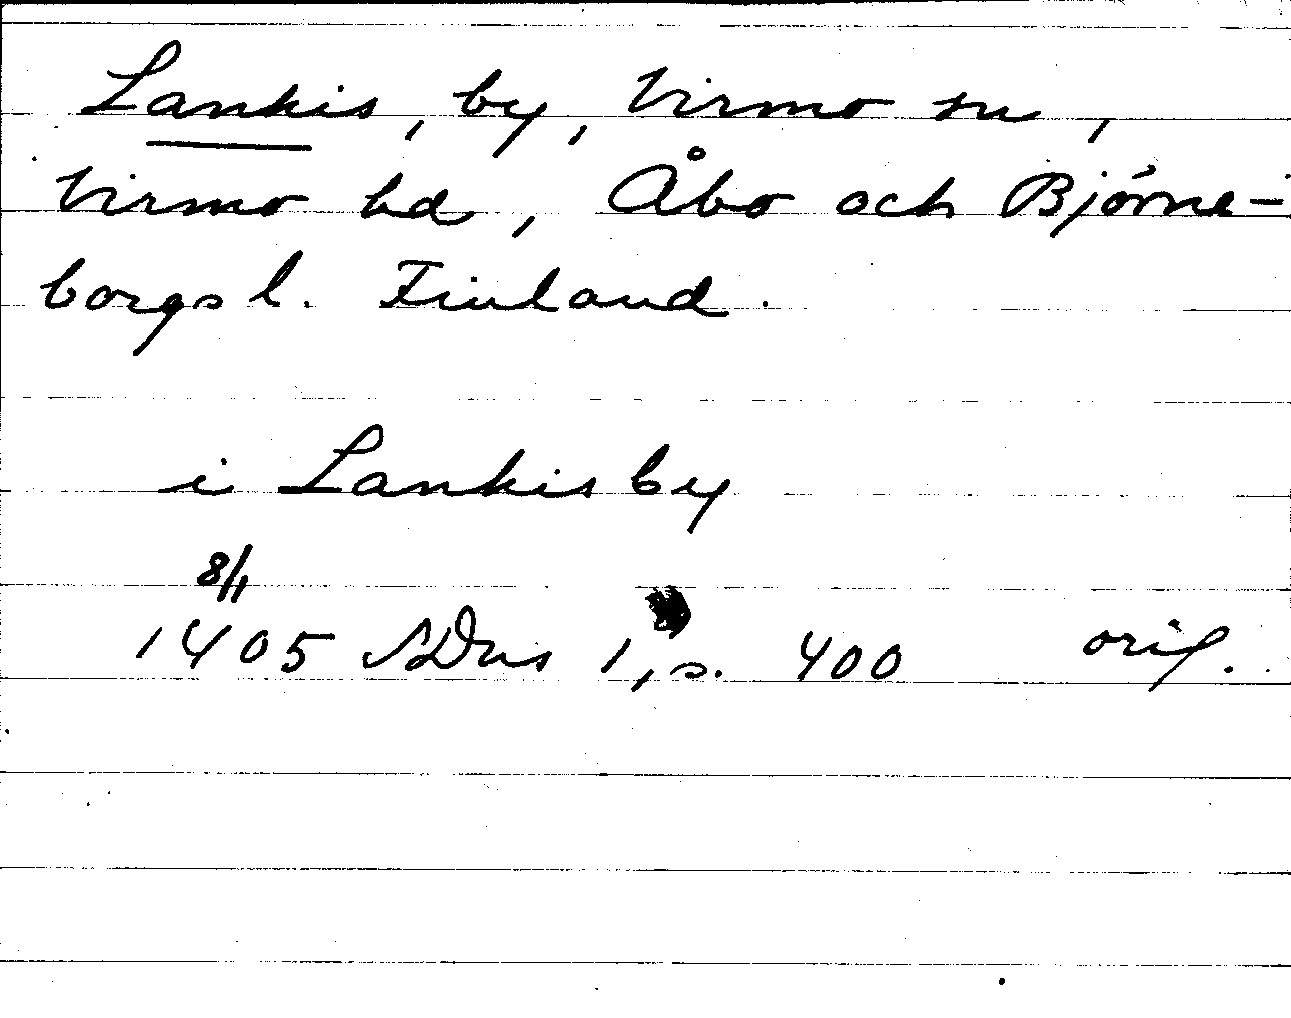 Lankis, by, Virmo sn,
Virmo hd, Åbo och Björne-
borgs l. Finland.
i Lankis by
8/1
1405 SDns 1, s. 400 orig.